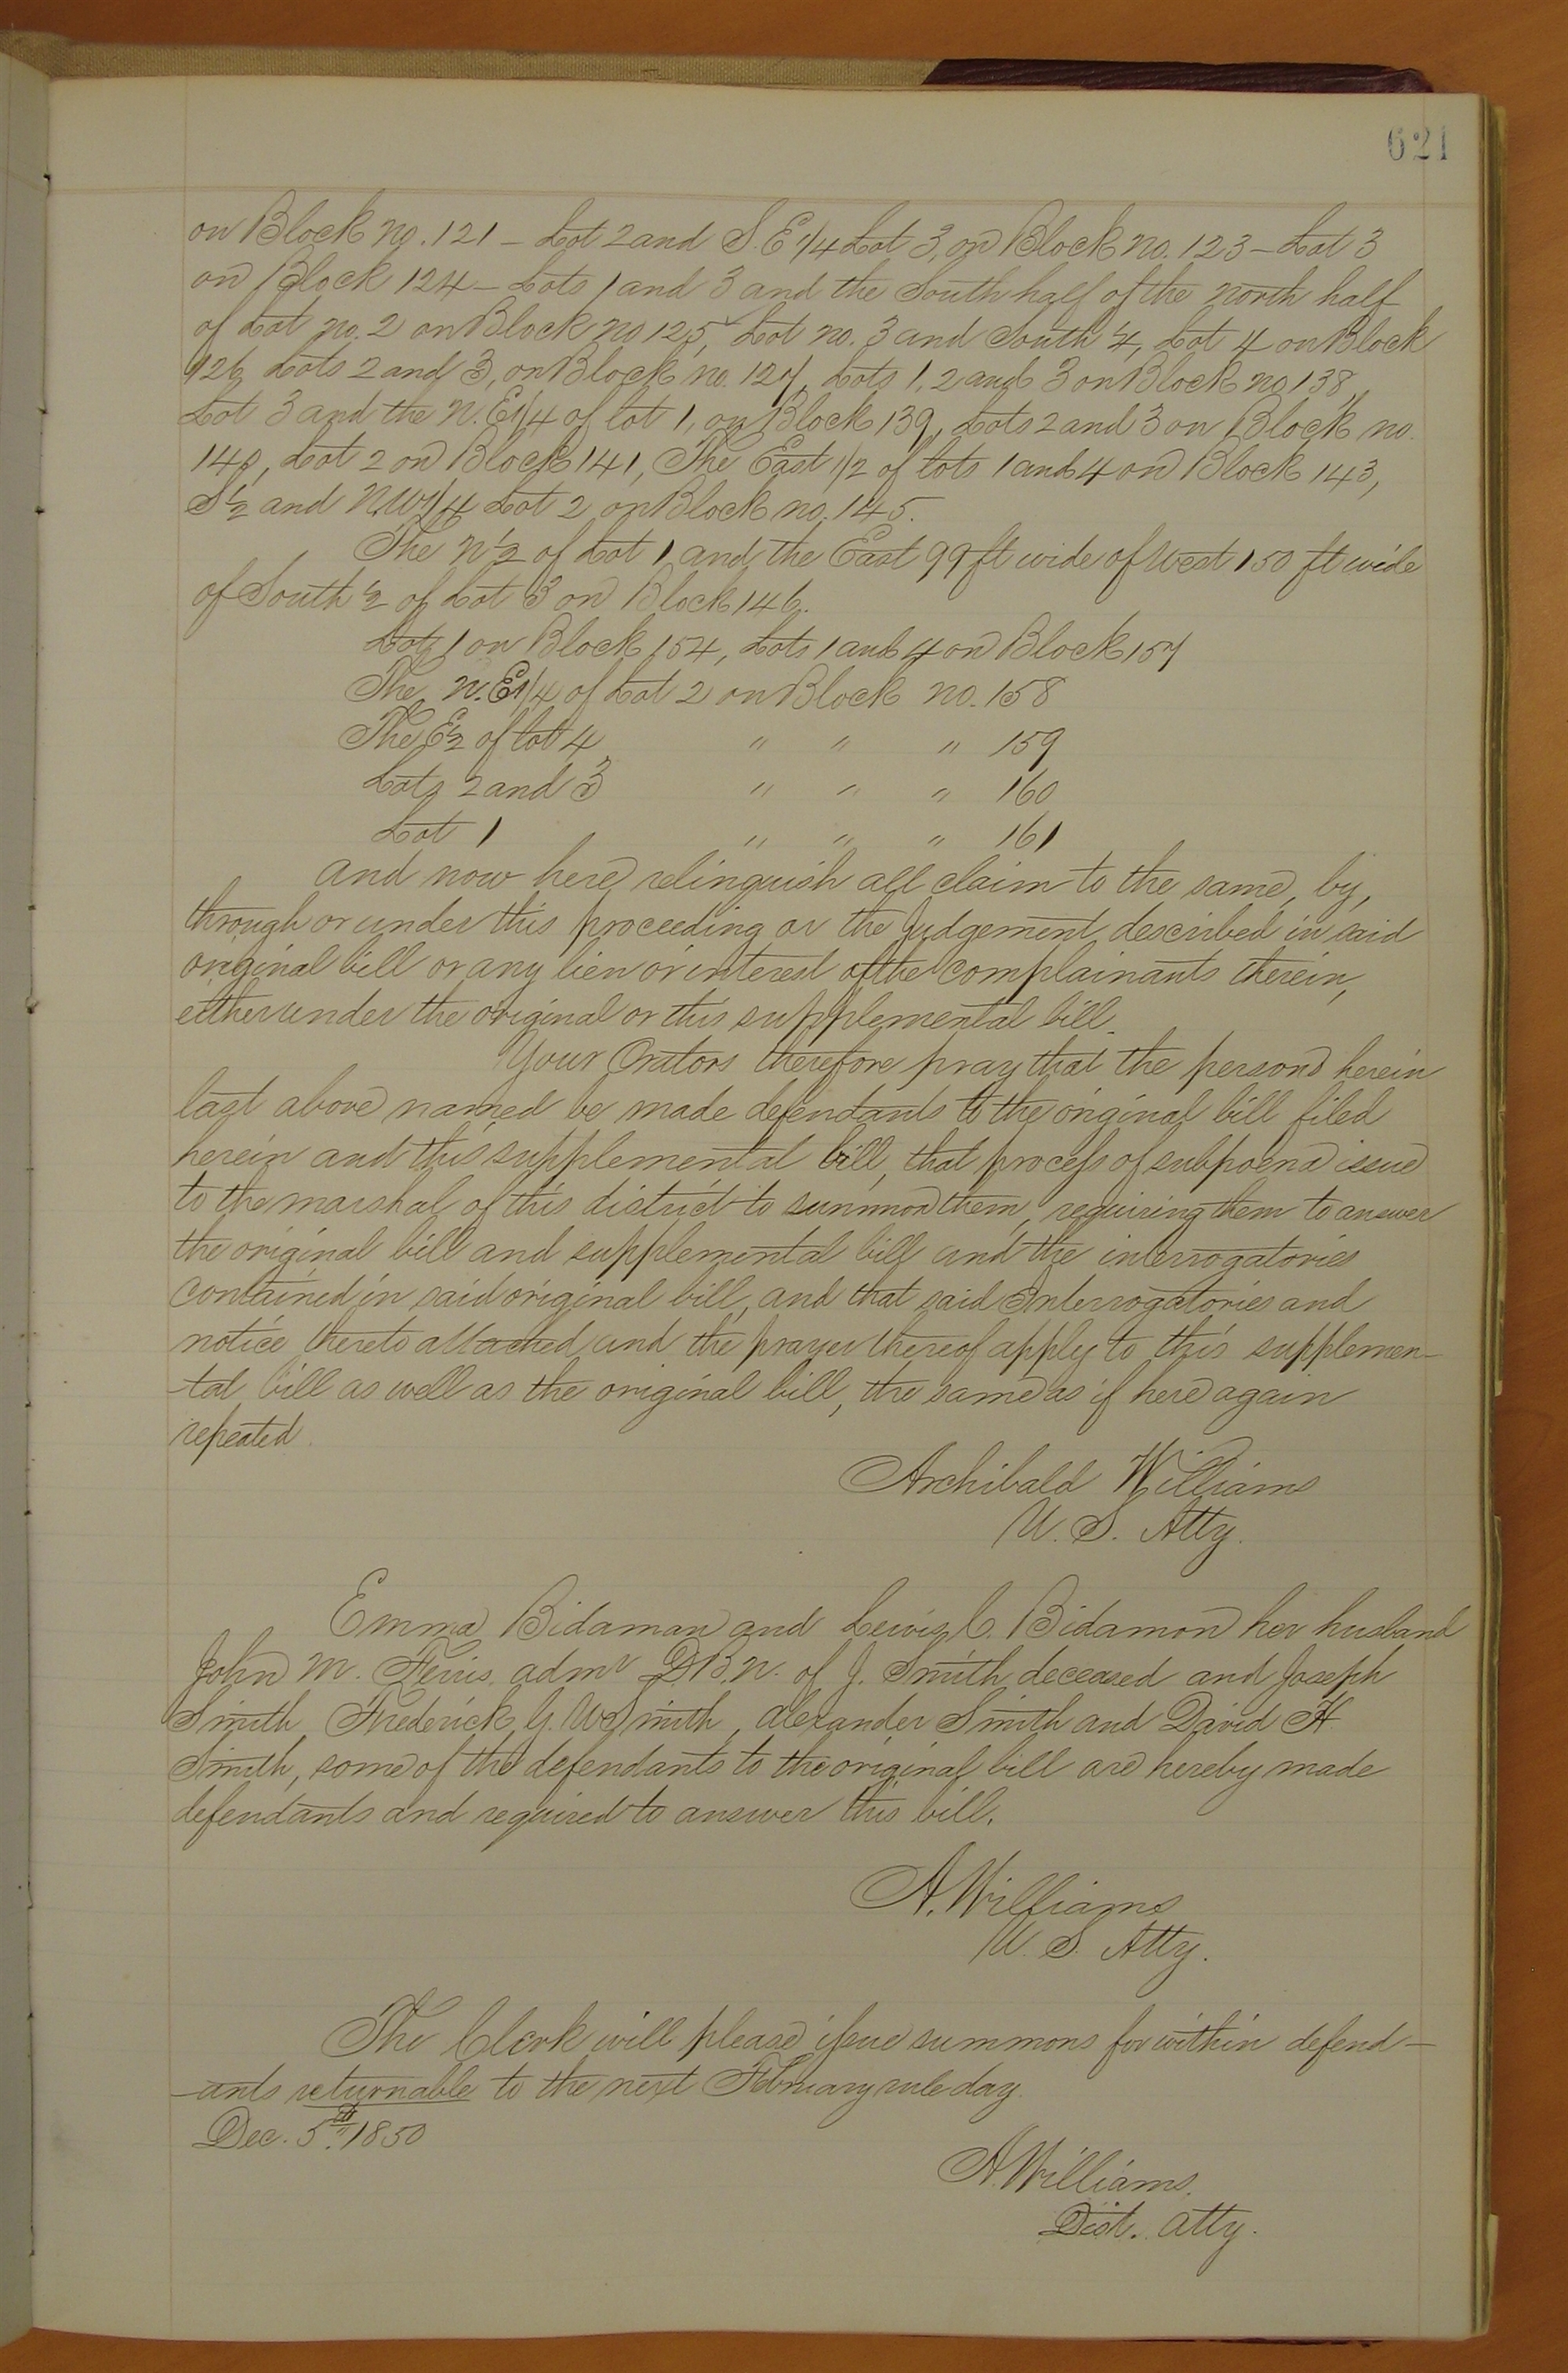 621
on Block no. 121 – Lot 2 and S. E 1/4 Lot 3, on Block no. 123 – Lot 3
on Block 124 – Lots 1 and 3 and the South half of the north half
of Lot no. 2 on Block no 125, Lot no. 3 and South 1/4, Lot 4 on Block
126, Lots 2 and 3, on Block no. 127, Lots 1, 2 and 3 on Block no 138,
Lot 3 and the N. E 1/4 of lot 1, on Block 139, Lots 2 and 3 on Block no.
140, Lot 2 on Block 141, The East 1/2 of lots 1 and 4 on Block 143,
S 1/2 and N.W 1/4 Lot 2 on Block no. 145.
The N 1/2 of Lot 1 and the East 99 ft wide of West 150 ft wide
of South 1/2 of Lot 3 on Block 146.
Lot 1 on Block 154, Lots 1 and 4 on Block 157
The N. E 1/4 of Lot 2 on Block no. 158
The E 1/2 of lot 4 " " " 159
Lots 2 and 3 " " " 160
Lot 1 " " " 161
and now here relinquish all claim to the same, by,
through or under this proceeding or the Judgement described in said
original bill or any lien or interest of the complainants therein,
either under the original or this supplemental bill.
Your Orators therefore pray that the persons herein
last above named be made defendants to the original bill filed
herein and this supplemental bill, that process of subpoena issue
to the marshal of this district to summon them, requiring them to answer
the original bill and supplemental bill and the interrogatories
contained in said original bill, and that said Interrogatories and
notice thereto attached and the prayer thereof apply to this supplemen-
-tal bill as well as the original bill, the same as if here again
repeated.
Archibald Williams
U. S. Atty.
Emma Bidaman and Lewis C. Bidamon her husband
John M. Ferris, admr D.B.N. of J. Smith deceased and Joseph
Smith, Frederick G. W. Smith, Alexander Smith and David H
Smith, some of the defendants to the original bill are hereby made
defendants and required to answer this bill.
A. Williams
U. S. Atty.
The Clerk will please issue summons for within defend-
-ants returnable to the next February rule day.
Dec. 5th 1850
A. Williams.
Dist. Atty.